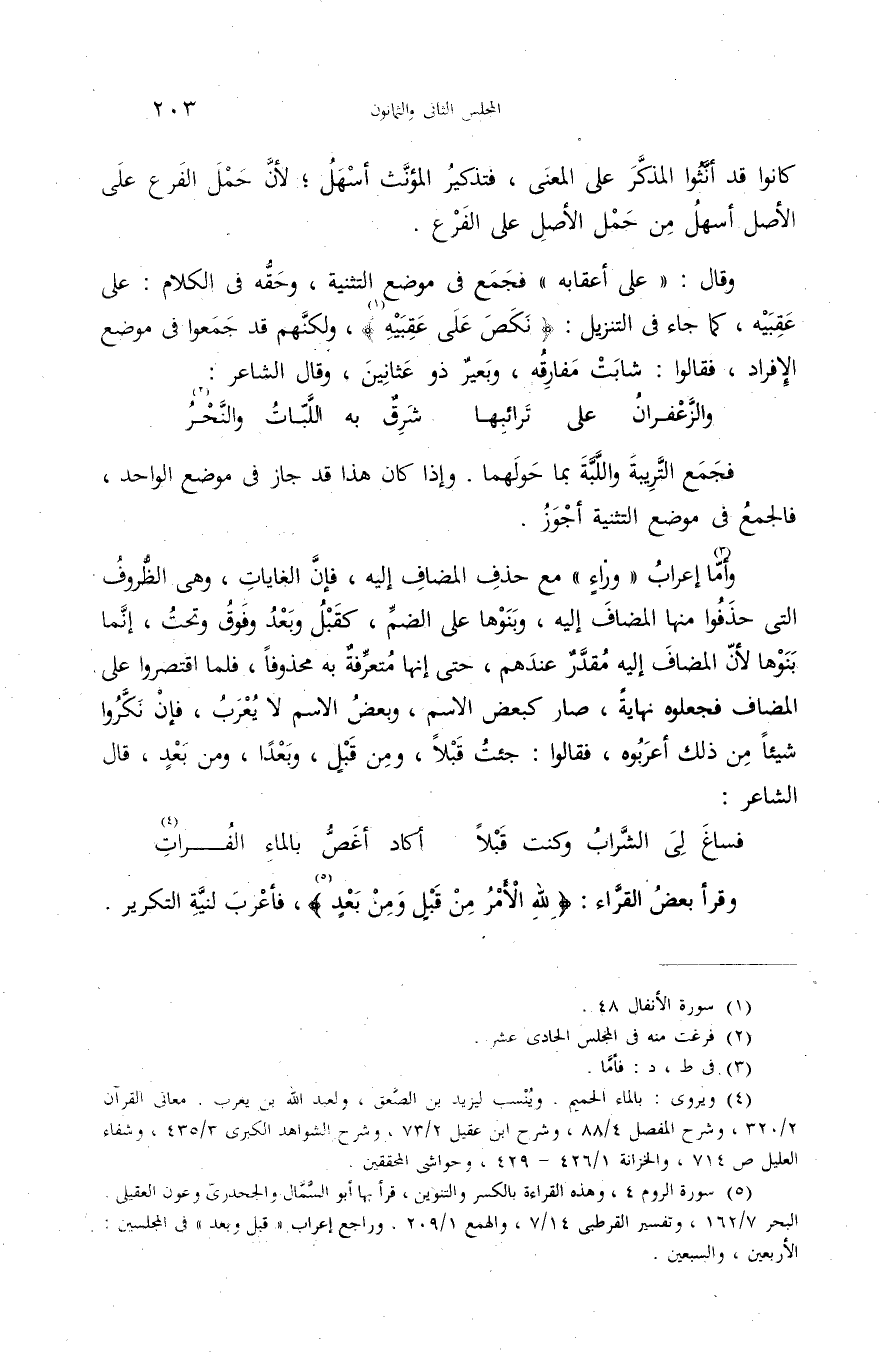 المجلس الثانى والثمانون
٢٠٣
كانوا قد أنَّثُوا المذكَّرَ على المعنَى ، فتذكيرُ المؤنَّث أسْهَلُ ؛ لأنَّ حَمْلَ الفَرع علَى
الأصل أسهلُ مِن حَمْل الأصلِ على الفَرْع .
وقال : « على أعقابه » فجَمَع فى موضع التثنية ، وحَقُّه فى الكلام : على
عَقِبَيْه ، كما جاء فى التنزيل : ﴿ نَكَصَ عَلَى عَقِبَيْهِ ﴾(١) ، ولكنَّهم قد جَمَعوا فى موضع
الإِفراد ، فقالوا : شابَتْ مَفارِقُه ، وبَعيرٌ ذو عَثانِينَ ، وقال الشاعر :
والزَّعْفـرانُ على تَرائبِهـا شَرِقٌ به اللَّبّـاتُ والنَّحْـرُ(٢)
فجَمَع التَّرِيبةَ واللَّبَّةَ بما حَولَهما . وإذا كان هذا قد جاز فى موضع الواحد ،
فالجمعُ فى موضع التثنية أجْوَزُ .
وأمّا(٣) إعرابُ « وراءٍ » مع حذفِ المضافِ إليه ، فإنَّ الغاياتِ ، وهى الظُّروفُ
التى حذَفُوا منها المضافَ إليه ، وبَنَوْها على الضمِّ ، كقَبْلُ وبَعْدُ وفَوقُ وتحتُ ، إنَّما
بَنَوْها لأنّ المضافَ إليه مُقدَّرٌ عندَهم ، حتى إنها مُتعرِّفةٌ به محذوفاً ، فلما اقتصروا على
المضاف فجعلوه نهايةً ، صار كبعض الاسم ، وبعضُ الاسم لا يُعْرَبُ ، فإنْ نَكَّرُوا
شيئاً مِن ذلك أعرَبُوه ، فقالوا : جئتُ قَبْلاً ، ومِن قَبْلٍ ، وبَعْدًا ، ومن بَعْدٍ ، قال
الشاعر :
فساغَ لِىَ الشَّرابُ وكنت قَبْلاً أكاد أغَصُّ بالماءِ الفُـــراتِ(٤)
وقرأ بعضُ القرَّاء : ﴿ لِلّٰهِ الْأَمْرُ مِنْ قَبْلٍ وَمِنْ بَعْدٍ ﴾(٥) ، فأعْربَ لنيَّةِ التكرير .
(١) سورة الأنفال ٤٨ .
(٢) فرغت منه فى المجلس الحادى عشر .
(٣) فى ط ، د : فأمَّا .
(٤) ويروى : بالماء الحميم . ويُنْسب ليزيد بن الصَّعق ، ولعبد الله بن يعرب . معانى القرآن
٣٢٠/٢ ، وشرح المفصل ٨٨/٤ ، وشرح ابن عقيل ٧٣/٢ ، وشرح الشواهد الكبرى ٤٣٥/٣ ، وشفاء
العليل ص ٧١٤ ، والخزانة ٤٢٦/١ – ٤٢٩ ، وحواشى المحققين .
(٥) سورة الروم ٤ ، وهذه القراءة بالكسر والتنوين ، قرأ بها أبو السَّمَّال والجحدرىّ وعون العقيلى .
البحر ١٦٢/٧ ، وتفسير القرطبى ٧/١٤ ، والهمع ٢٠٩/١ . وراجع إعراب « قبل وبعد » فى المجلسين :
الأربعين ، والسبعين .